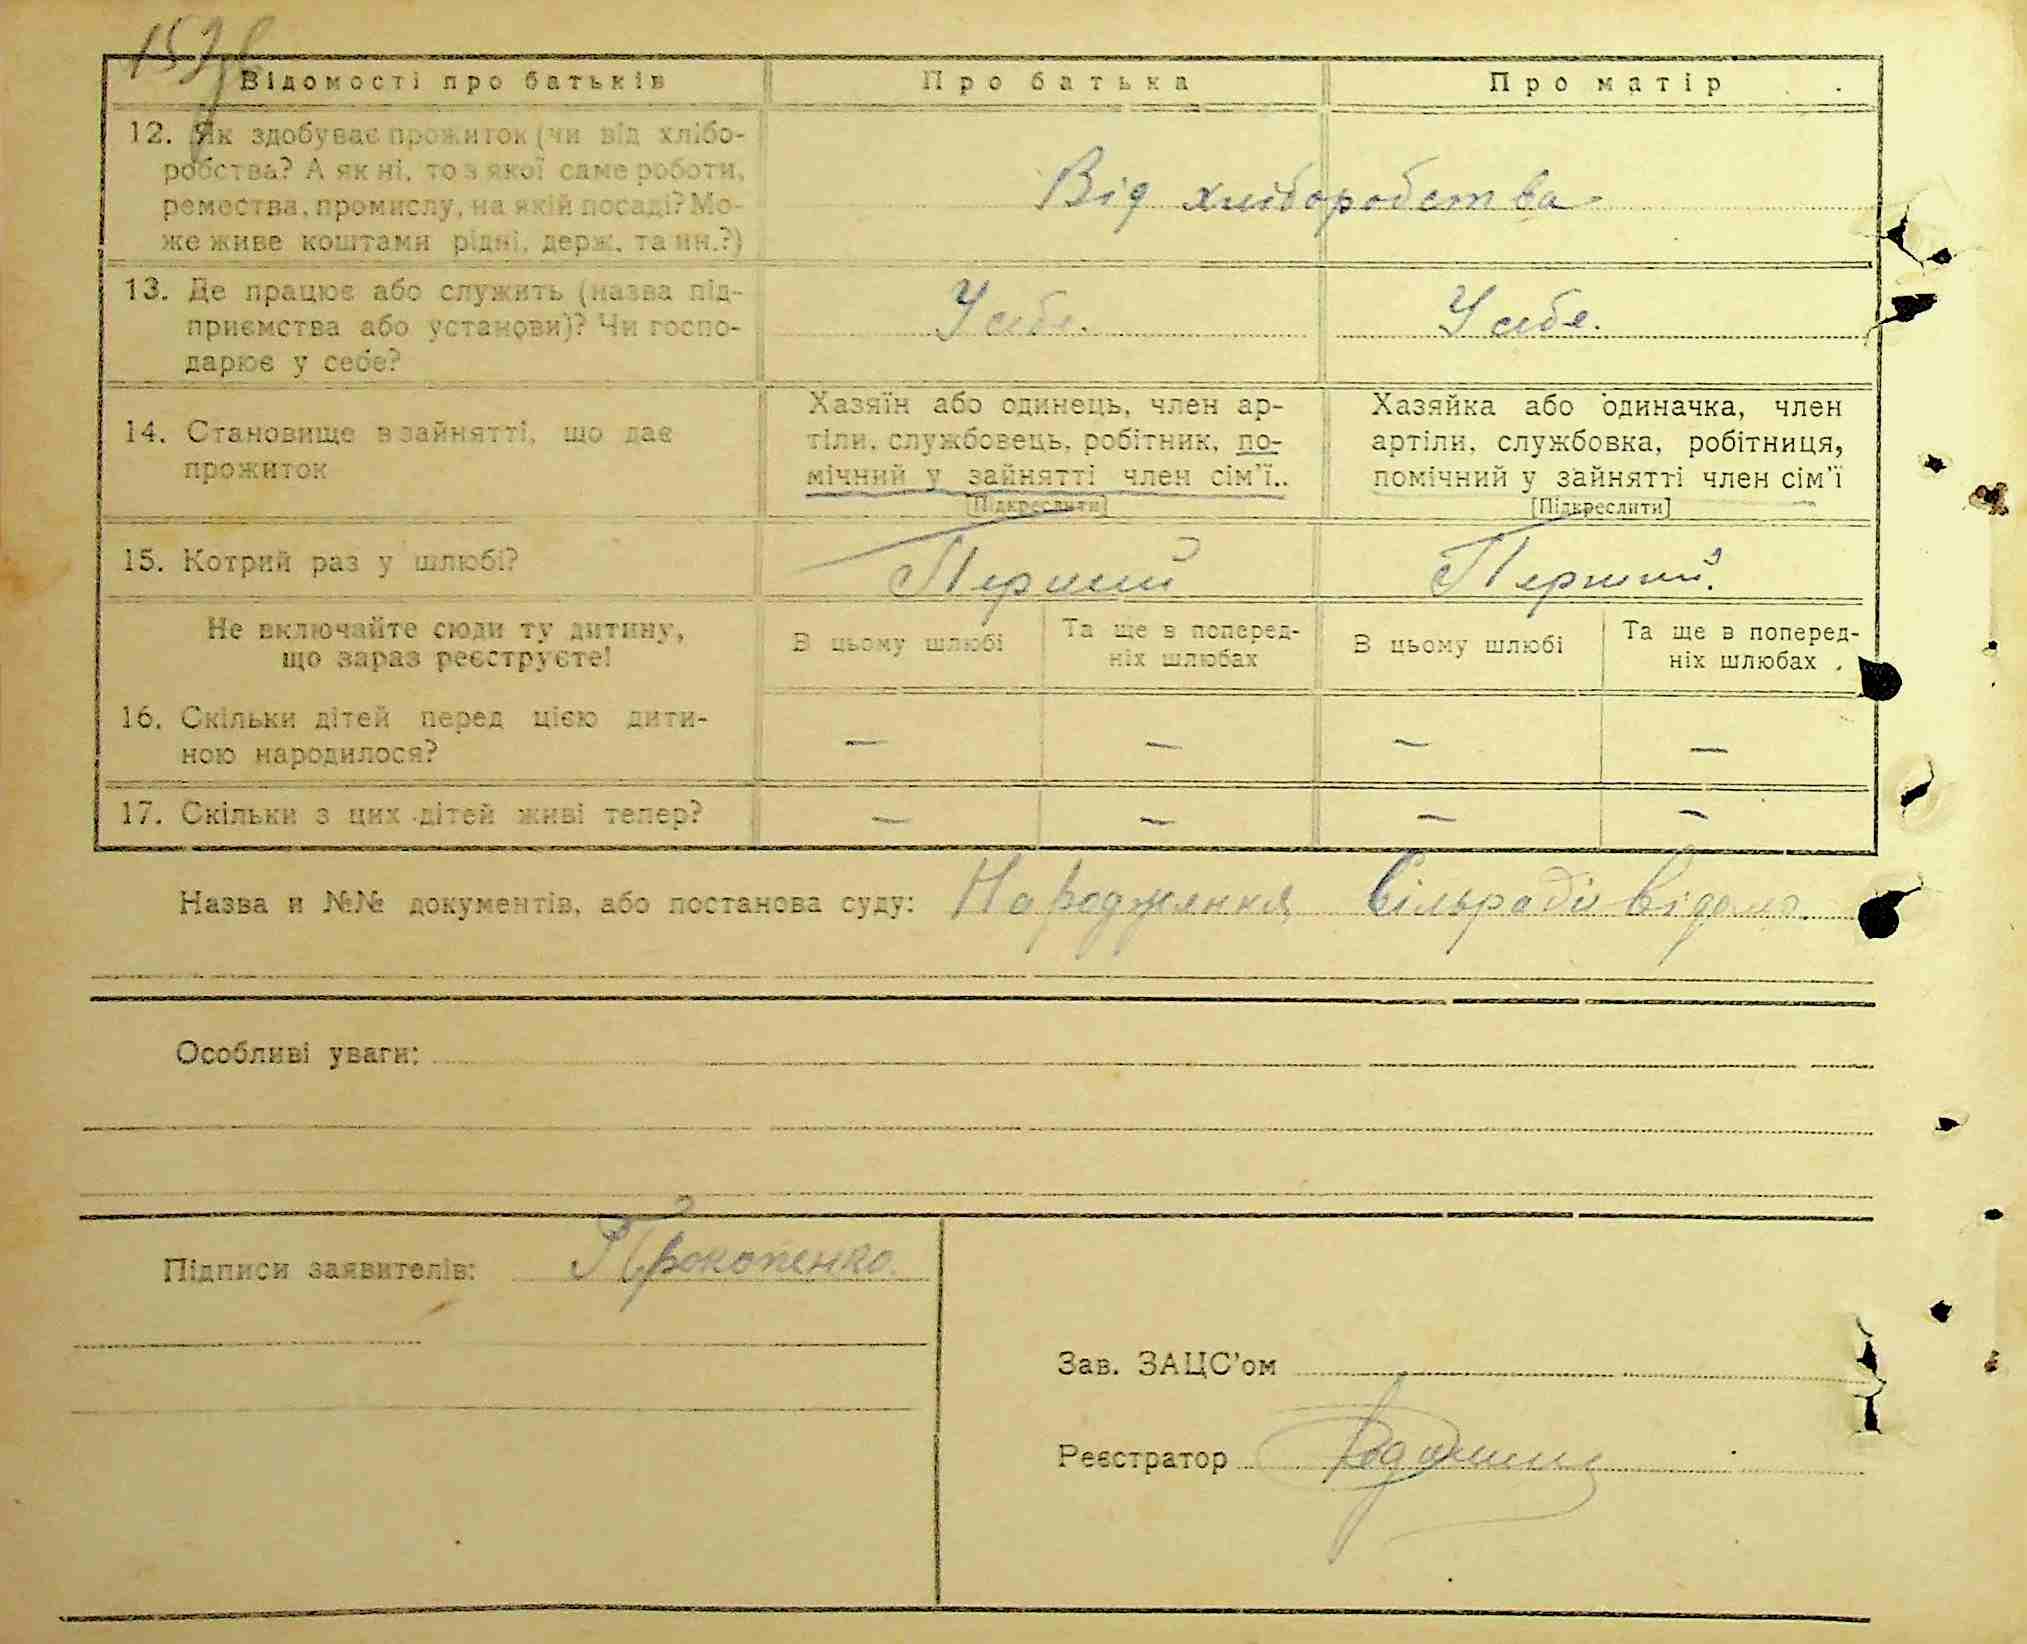 Відомості про батьків Про батька Про матір
12. Як здобуває прожиток (чи від хлібо-
робства? А як ні, то з якої саме роботи,
ремества, промислу, на якій посаді? Мо-
же живе коштами рідні, держ. та ин.?)
Від хліборобства
13. Де працює або служить (назва під-
приємства або установи)? Чи госпо-
дарює у себе?
У себе. У себе.
14. Становище в зайнятті, що дає
прожиток
Хазяїн або одинець, член ар-
тіли, службовець, робітник, по-
мічний у зайнятті член сім'ї..
[Підкреслити]
Хазяйка або одиначка, член
артіли, службовка, робітниця,
помічний у зайнятті член сім'ї
[Підкреслити]
15. Котрий раз у шлюбі? Перший Перший.
Не включайте сюди ту дитину,
що зараз реєструєте!
В цьому шлюбі
Та ще в поперед-
ніх шлюбах
В цьому шлюбі
Та ще в поперед-
ніх шлюбах
16. Скільки дітей перед цією дити-
ною народилося?
– – – –
17. Скільки з цих дітей живі тепер? – – – –
Назва и №№ документів, або постанова суду: Народження сільраді відомо.
Особливі уваги:
Підписи заявителів: Прокопенко
Зав. ЗАЦС'ом
Реєстратор